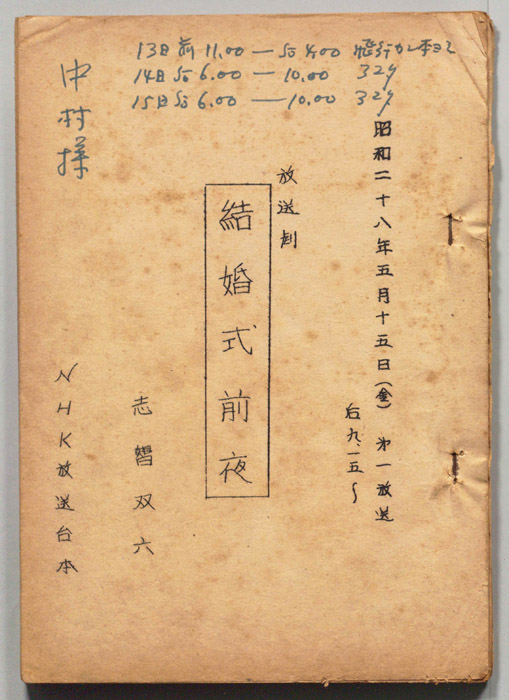 13日 前 11.00 — 后 4.00
14日 后 6.00 — 10.00 329
15日 后 6.00 — 10.00 329
昭和二十八年五月十五日(金) 第一放送
后九.一五〜
放送劇
結婚式前夜
志智双六
中村様
NHK放送台本